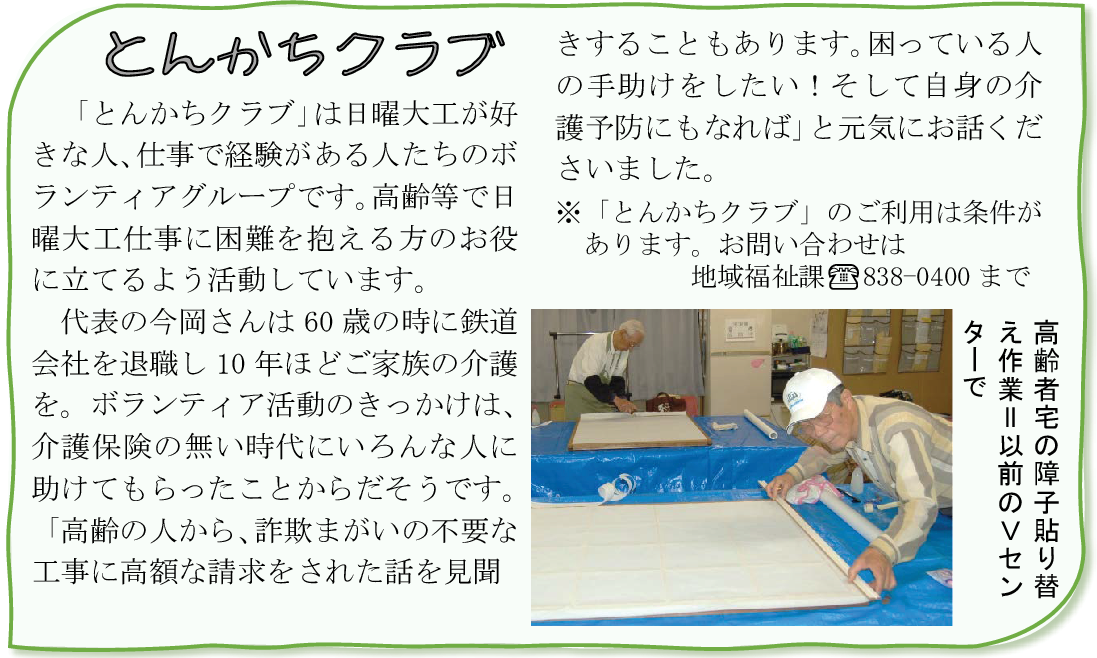 とんかちクラブ
「とんかちクラブ」は日曜大工が好
きな人、仕事で経験がある人たちのボ
ランティアグループです。高齢等で日
曜大工仕事に困難を抱える方のお役
に立てるよう活動しています。
代表の今岡さんは 60 歳の時に鉄道
会社を退職し 10 年ほどご家族の介護
を。ボランティア活動のきっかけは、
介護保険の無い時代にいろんな人に
助けてもらったことからだそうです。
「高齢の人から、詐欺まがいの不要な
工事に高額な請求をされた話を見聞
きすることもあります。困っている人
の手助けをしたい！そして自身の介
護予防にもなれば」と元気にお話くだ
さいました。
※「とんかちクラブ」のご利用は条件が
あります。お問い合わせは
地域福祉課☎838-0400 まで
高齢者宅の障子貼り替
え作業＝以前のＶセン
ターで